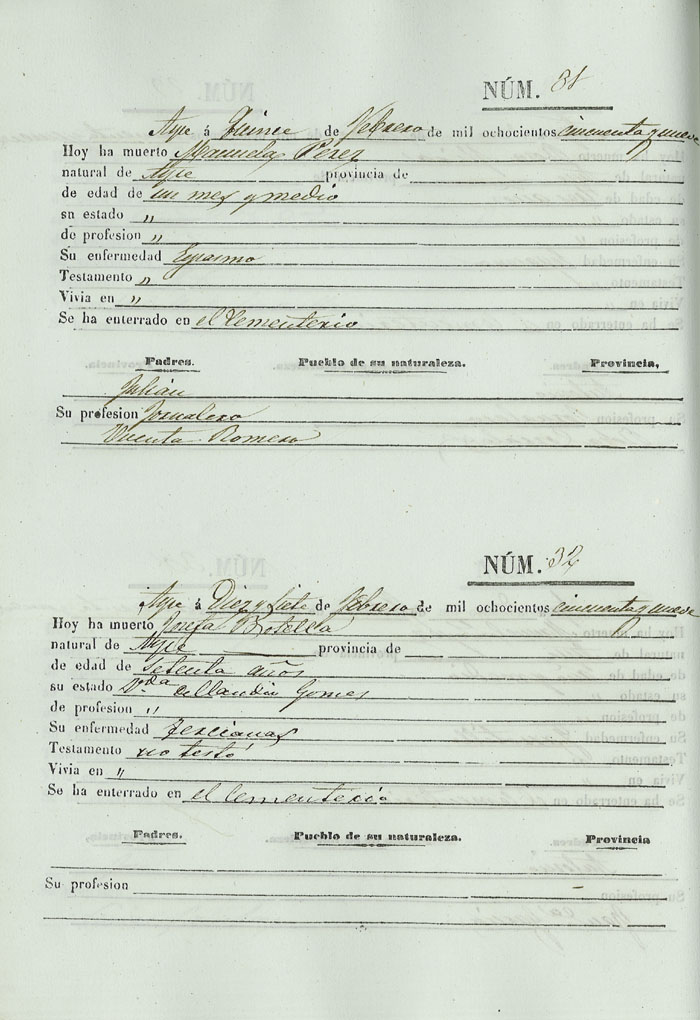 NÚM. 31
Aspe á Quince de Febrero de mil ochocientos cincuenta y nueve
Hoy ha muerto Manuela Perez
natural de Aspe provincia de
de edad de un mes y medio
sn estado "
de profesion "
Su enfermedad Espasmo
Testamento "
Vivia en "
Se ha enterrado en el Cementerio
Padres. Pueblo de su naturaleza. Provincia,
Julián
Su profesion Jornalero
Vicenta Romero
NÚM. 32
Aspe á Diez y siete de Febrero de mil ochocientos cincuenta y nueve
Hoy ha muerto Josefa Botella
natural de Aspe provincia de
de edad de setenta años
su estado V.da Gomes
de profesion "
Su enfermedad Tercianas
Testamento no testó
Vivia en "
Se ha enterrado en el Cementerio
Padres. Pueblo de su naturaleza. Provincia
Su profesion